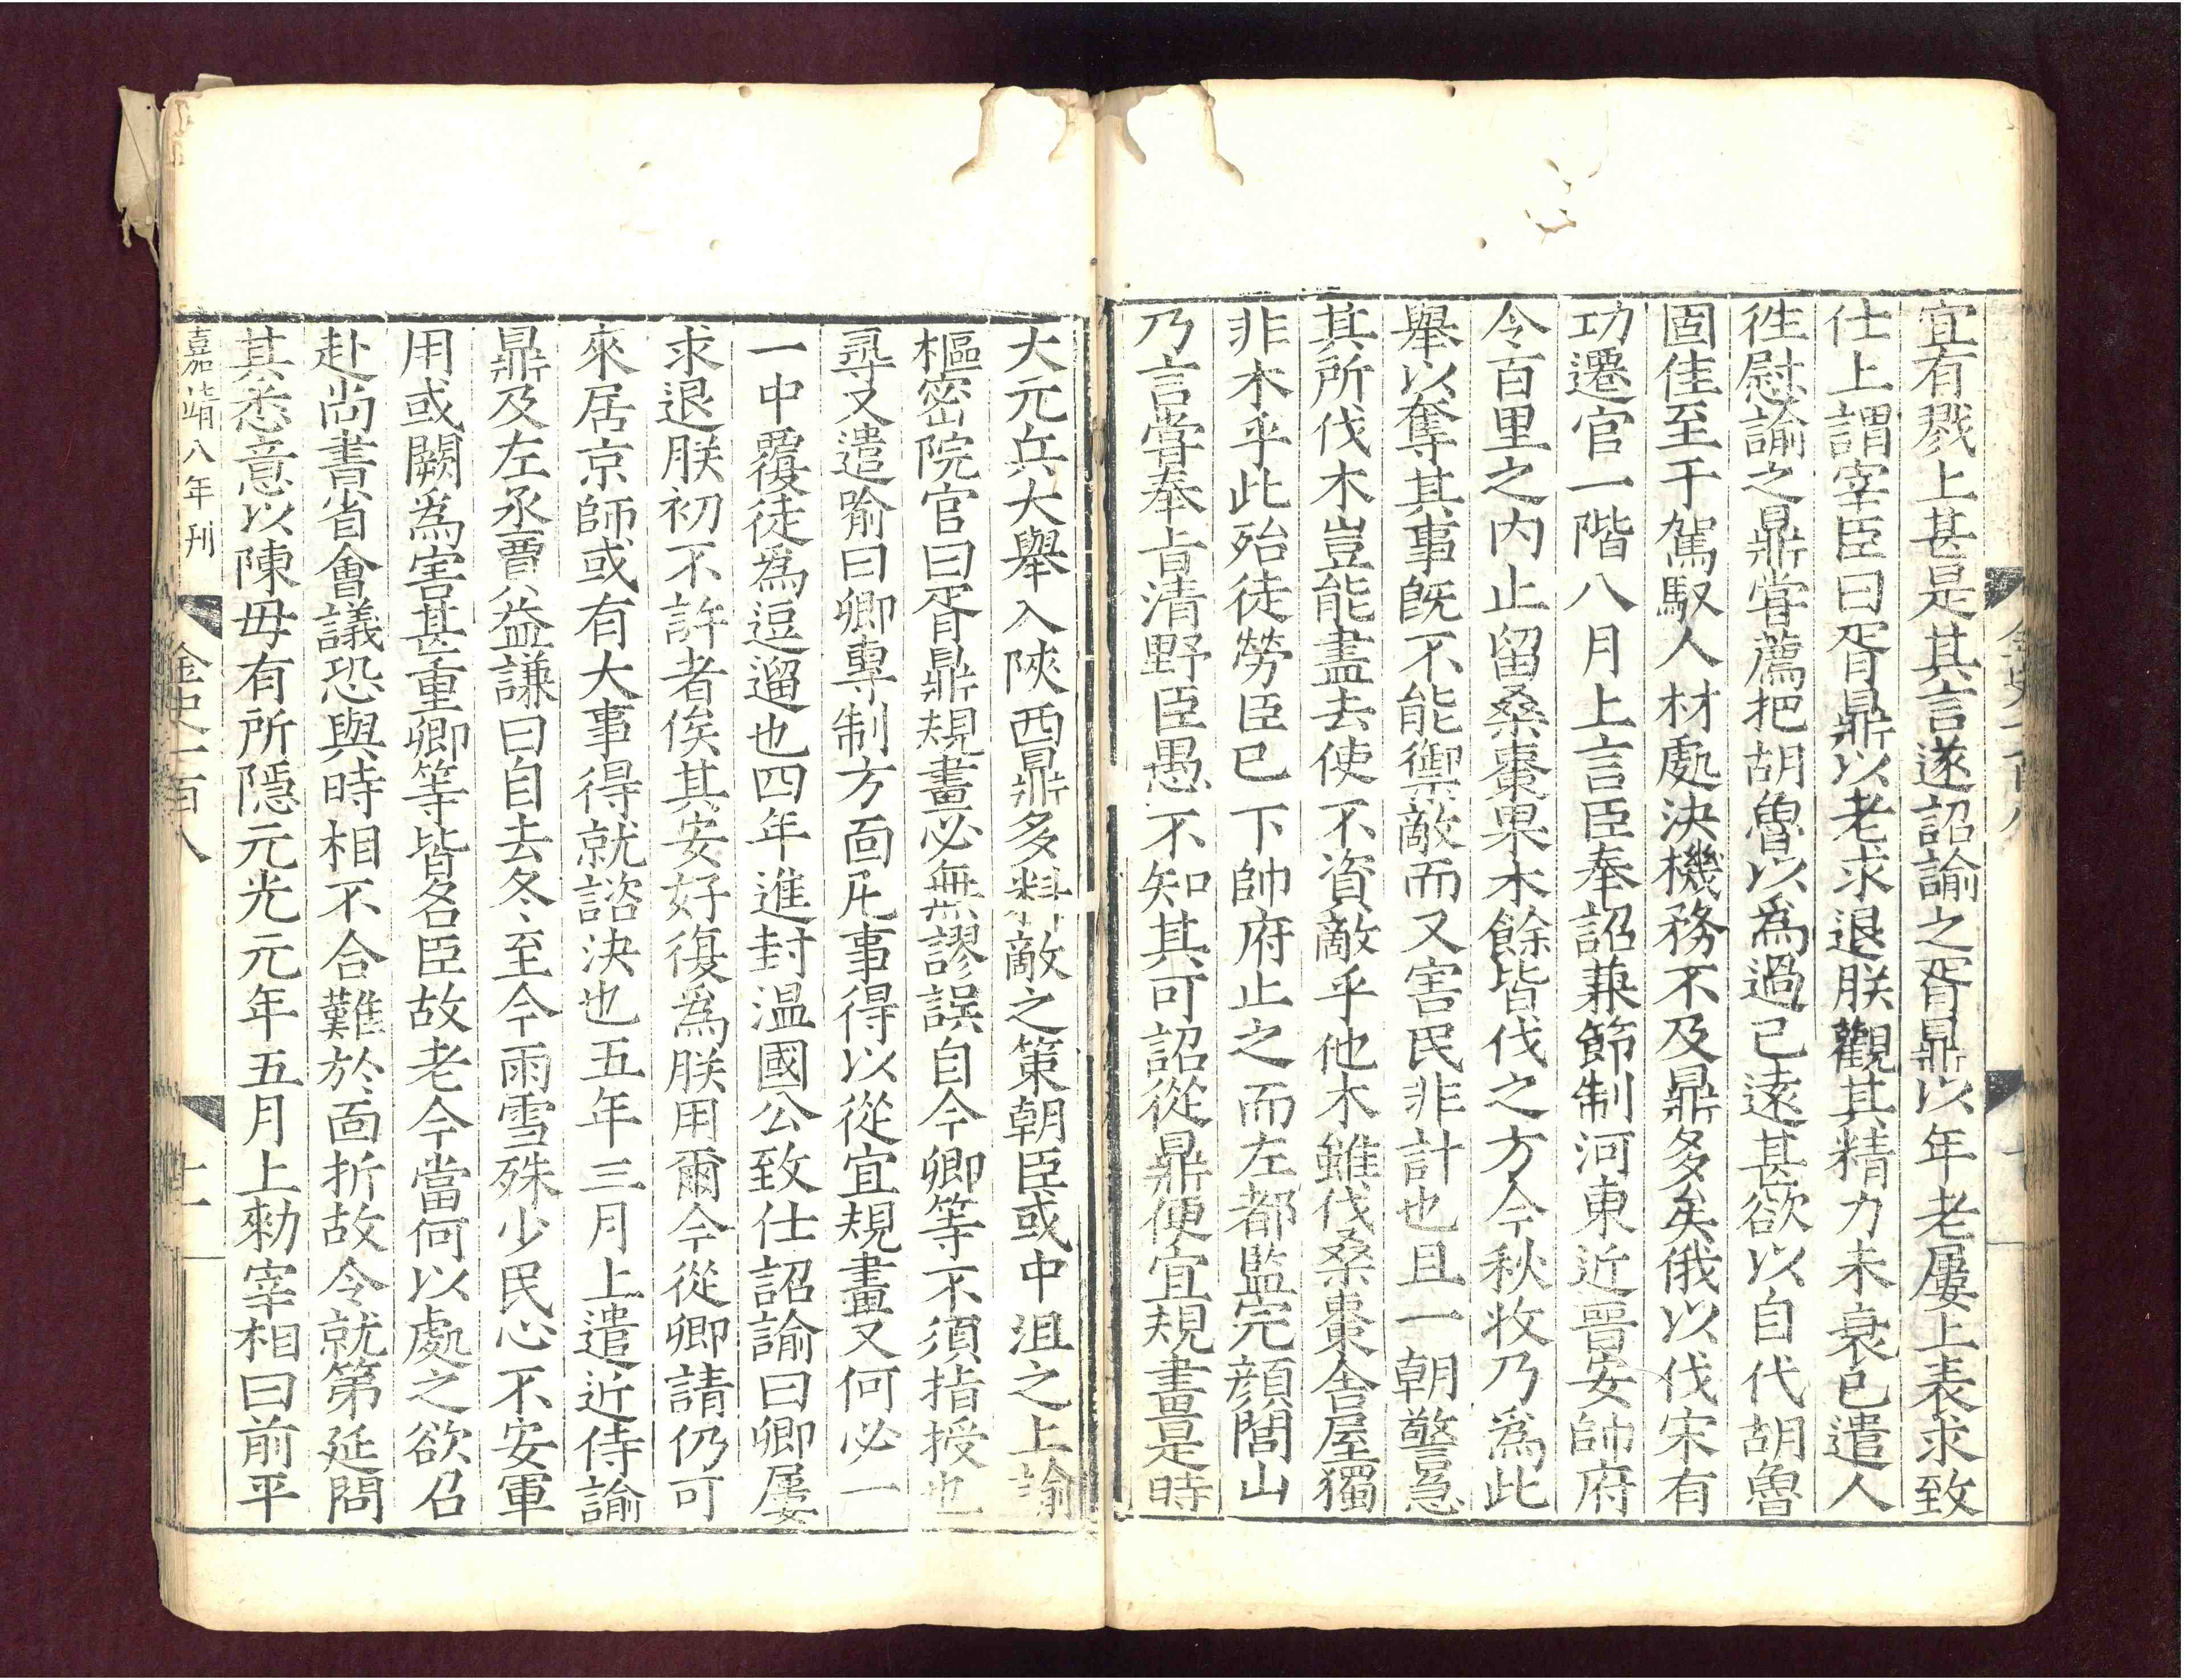 宜有戮上甚是其言遂詔諭之胥鼎以年老屢上表求致
仕上謂宰臣曰胥鼎以老求退朕觀其精力未衰已遣人
徃慰諭之鼎嘗薦把胡魯以為過已遠甚欲以自代胡魯
固佳至于駕馭人材處決機務不及鼎多矣俄以伐宋有
功遷官一階八月上言臣奉詔兼節制河東近晉安帥府
令百里之内止留桑棗果木餘皆伐之方今秋收乃爲此
舉以奪其事既不能禦敵而又害民非計也且一朝警急
其所伐木豈能盡去使不資敵乎他木雖伐桑棗舍屋獨
非木乎此殆徒勞臣已下帥府止之而左都監完顔閭山
乃言嘗奉旨清野臣愚不知其可詔從鼎便宜規畫是時
大元兵大舉入陜西鼎多料敵之策朝臣或中沮之上諭
樞密院官曰胥鼎規畫必無謬誤自今卿等不須指授也
尋又遣喻曰卿專制方面凡事得以從宜規畫又何必一
一中覆徒爲逗遛也四年進封温國公致仕詔諭曰卿屢
求退朕初不許者俟其安好復爲朕用爾今從卿請仍可
來居京師或有大事得就諮決也五年三月上遣近侍諭
鼎及左丞賈益謙曰自去冬至今雨雪殊少民心不安軍
用或闕爲害甚重卿等皆名臣故老今當何以處之欲召
赴尚書省會議恐與時相不合難於面折故令就第延問
其悉意以陳毋有所隱元光元年五月上勑宰相曰前平
嘉靖八年刊
金史一百八
十一